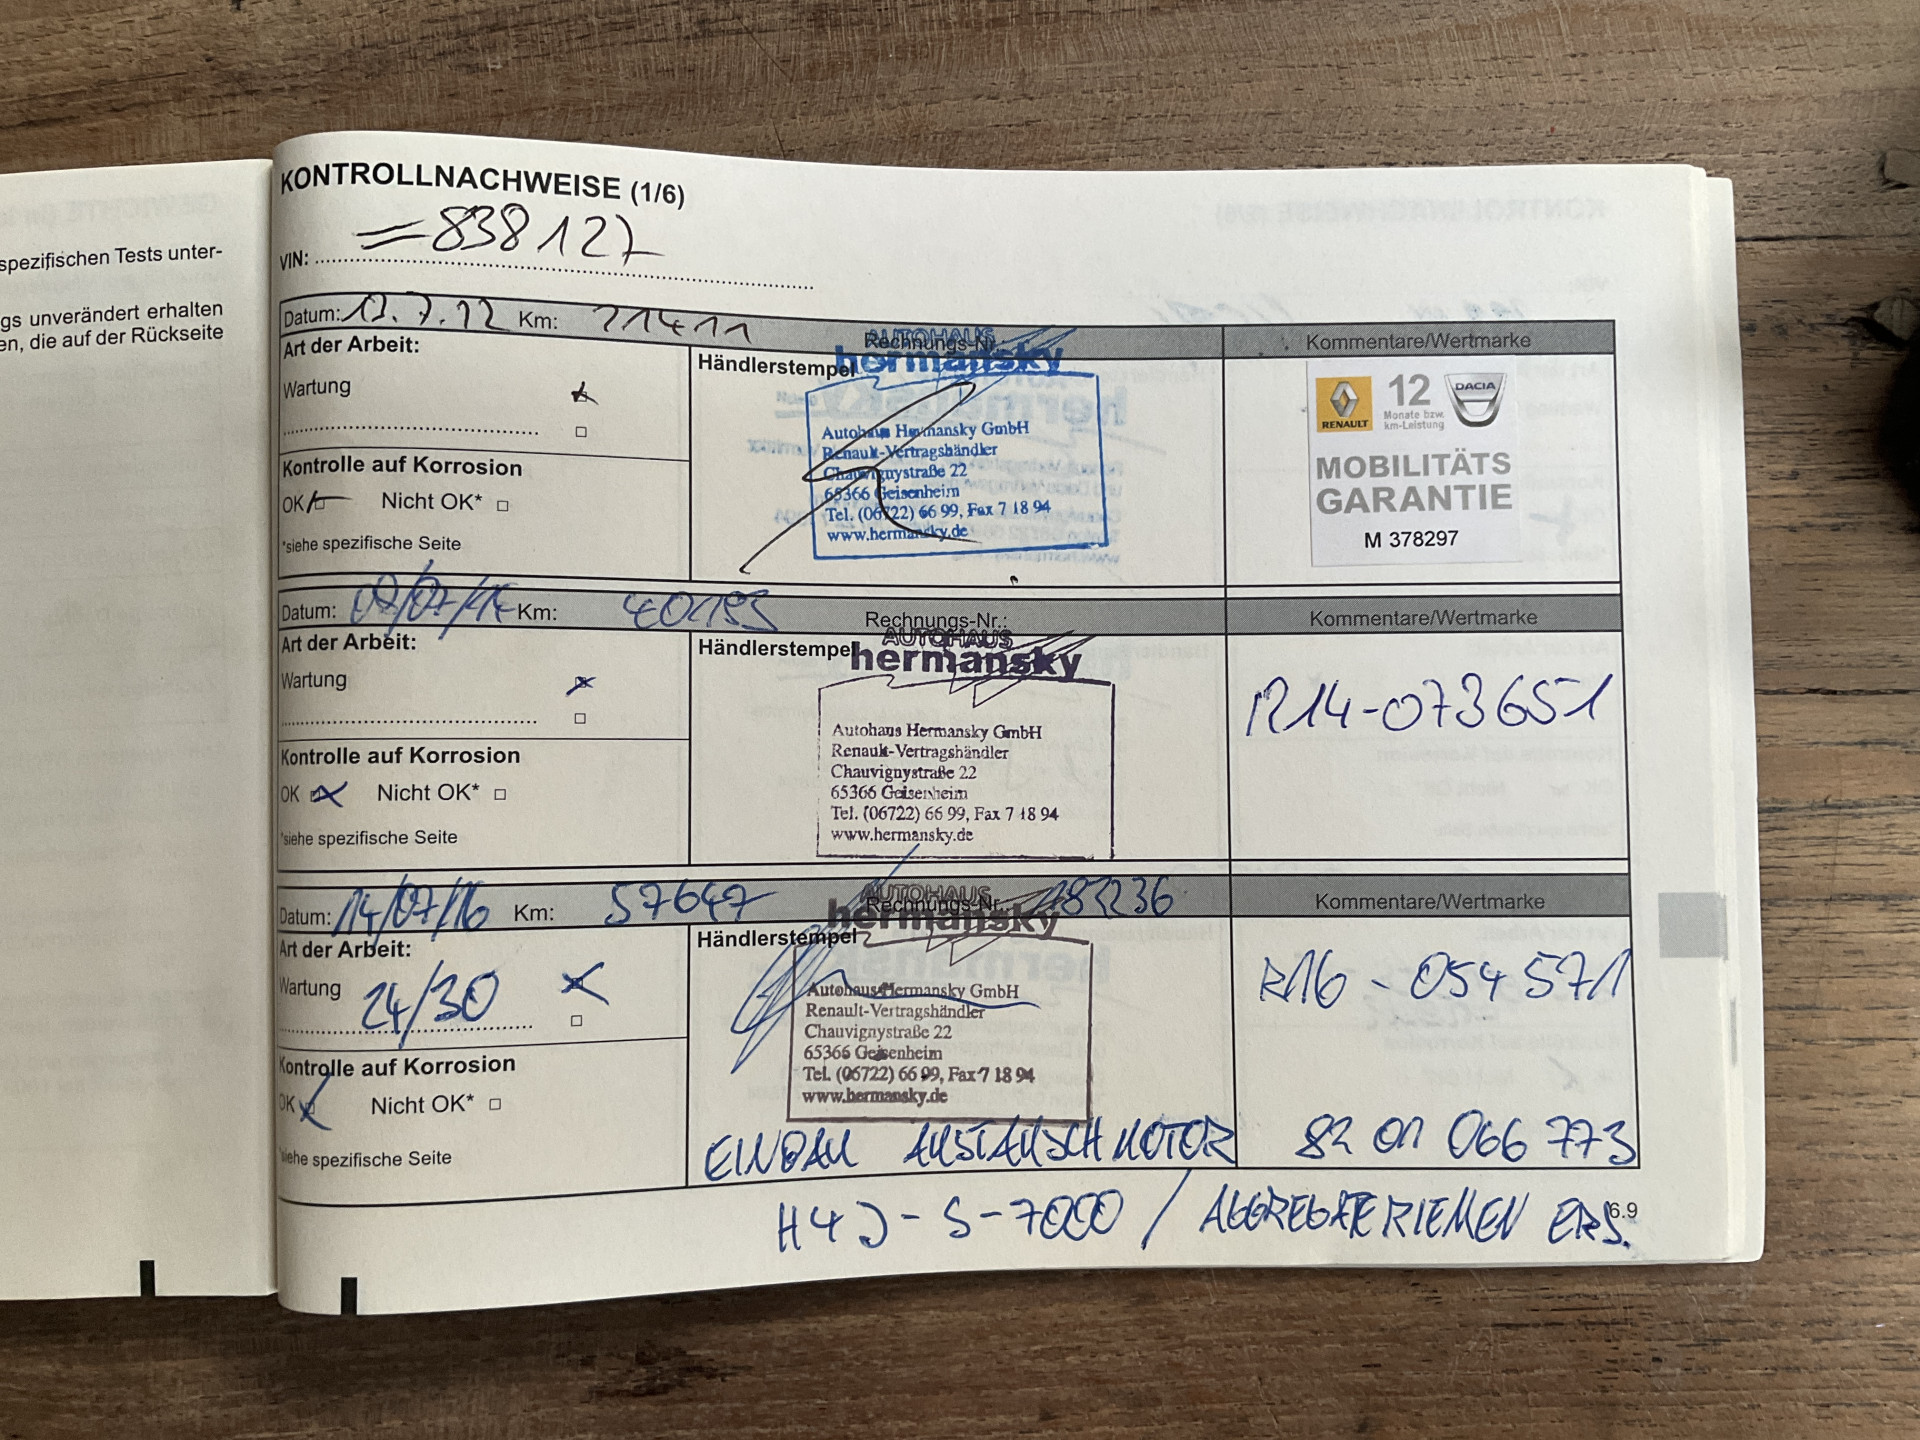 spezifischen Tests unter-
gs unverändert erhalten
en, die auf der Rückseite
KONTROLLNACHWEISE (1/6)
VIN: =838127
Datum: Km: 21411 Rechnungs-Nr. Kommentare/Wertmarke
Art der Arbeit:
Wartung
Kontrolle auf Korrosion
OK Nicht OK*
*siehe spezifische Seite
Händlerstempel
AUTOHAUS
hermansky
Autohaus Hermansky GmbH
Renault-Vertragshändler
Chauvignystraße 22
65366 Geisenheim
Tel. (06722) 66 99, Fax 7 18 94
www.hermansky.de
RENAULT
12
Monate bzw.
km-Leistung
DACIA
MOBILITÄTS
GARANTIE
M 378297
Datum: Km: 40193 Rechnungs-Nr.: Kommentare/Wertmarke
Art der Arbeit:
Wartung
Kontrolle auf Korrosion
OK Nicht OK*
*siehe spezifische Seite
Händlerstempel
AUTOHAUS
hermansky
Autohaus Hermansky GmbH
Renault-Vertragshändler
Chauvignystraße 22
65366 Geisenheim
Tel. (06722) 66 99, Fax 7 18 94
www.hermansky.de
R14-073651
Datum: 14/07/16 Km: 57647 Rechnungs-Nr. Kommentare/Wertmarke
Art der Arbeit:
Wartung 24/30
Kontrolle auf Korrosion
OK Nicht OK*
*siehe spezifische Seite
Händlerstempel
AUTOHAUS
hermansky
Autohaus Hermansky GmbH
Renault-Vertragshändler
Chauvignystraße 22
65366 Geisenheim
Tel. (06722) 66 99, Fax 7 18 94
www.hermansky.de
R16 - 054571
EINBAU AUSTAUSCHMOTOR 82 01 066 773
H4J-S-7000 / AGGREGATERIEMEN ERS.
6.9